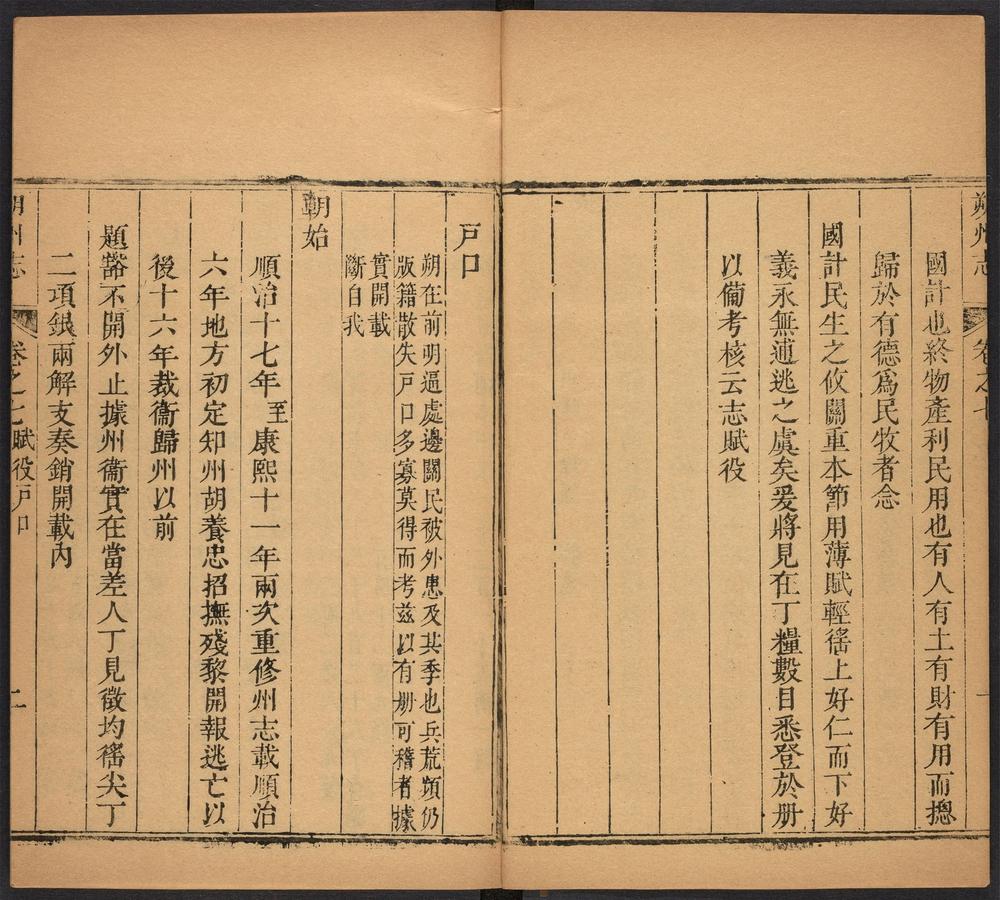 朔州志 卷之七
國計也終物產利民用也有人有土有財有用而摠
歸於有德爲民牧者念
國計民生之攸關重本節用薄賦輕徭上好仁而下好
義永無逋逃之虞矣爰將見在丁糧數目悉登於册
以備考核云志賦役
戸口
朔在前明逼處邊關民被外患及其季也兵荒頻仍
版籍散失戸口多寡莫得而考茲以有册可稽者據
實開載
斷自我
朝始
順治十七年至康熙十一年兩次重修州志載順治
六年地方初定知州胡養忠招撫殘黎開報逃亡以
後十六年裁衞歸州以前
題豁不開外止據州衞實在當差人丁見徵均徭尖丁
二項銀兩解支奏銷開載內
朔州志 卷之七賦役戸口 二